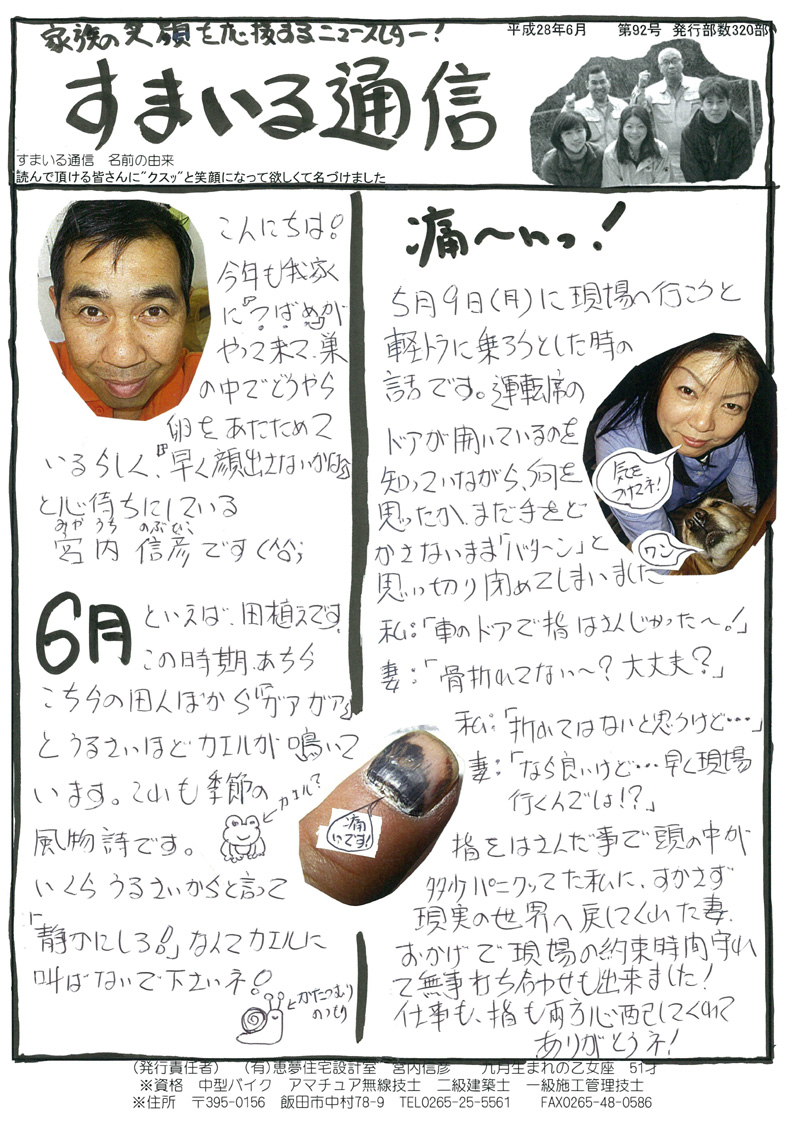 家族の笑顔を応援するニュースレター！
平成28年6月　第92号　発行部数320部
すまいる通信
すまいる通信　名前の由来
読んで頂ける皆さんに"クスッ"と笑顔になって欲しくて名づけました
こんにちは！
今年も我家
に『つばめ』が
やって来て、巣
の中でどうやら
卵をあたためて
いるらしく、『早く顔出さないかな』
と心待ちにしている
みやうち のぶひこ
宮内 信彦です(^^;
6月
といえば、田植えです。
この時期、あちら
こちらの田んぼから『ガアガア』
とうるさいほどカエルが鳴いて
います。これも季節の
風物詩です。
カエル？
いくらうるさいからと言って
「静かにしろ！」なんてカエルに
叫ばないで下さいネ！
かたつむり
のつもり
痛〜いっ！
5月9日(月)に現場へ行こうと
軽トラに乗ろうとした時の
話です。運転席の
ドアが開いているのを
知っていながら、何を
思ったか、まだ手をど
かさないまま「バターン」と
思い切り閉めてしまいました
気を
つけてネ！
ワン
私：「車のドアで指はさんじかった〜！」
妻：「骨折れてない〜？大丈夫？」
私：「折れてはないと思うけど…」
妻：「なら良いけど…早く現場
行くんでは！？」
痛
いです！
指をはさんだ事で頭の中が
多少パニクッてた私に、すかさず
現実の世界へ戻してくれた妻。
おかげで現場の約束時間守れ
て無事打ち合わせも出来ました！
仕事も、指も両方心配してくれて
ありがとうネ！
(発行責任者)　(有)恵夢住宅設計室　宮内信彦　　九月生まれの乙女座　51才
※資格　中型バイク　アマチュア無線技士　二級建築士　一級施工管理技士
※住所　〒395-0156　飯田市中村78-9　TEL0265-25-5561　　FAX0265-48-0586